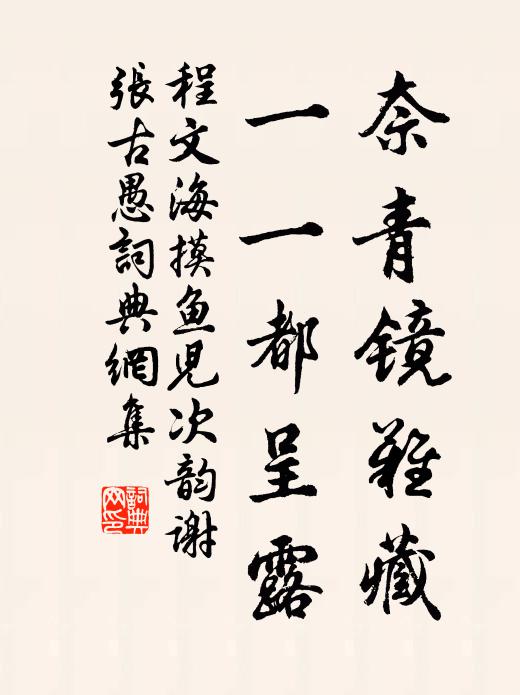 奈青镜难藏
一一都呈露
程文海摸鱼児次韵谢
張古愚詞典網集
詞典
网印